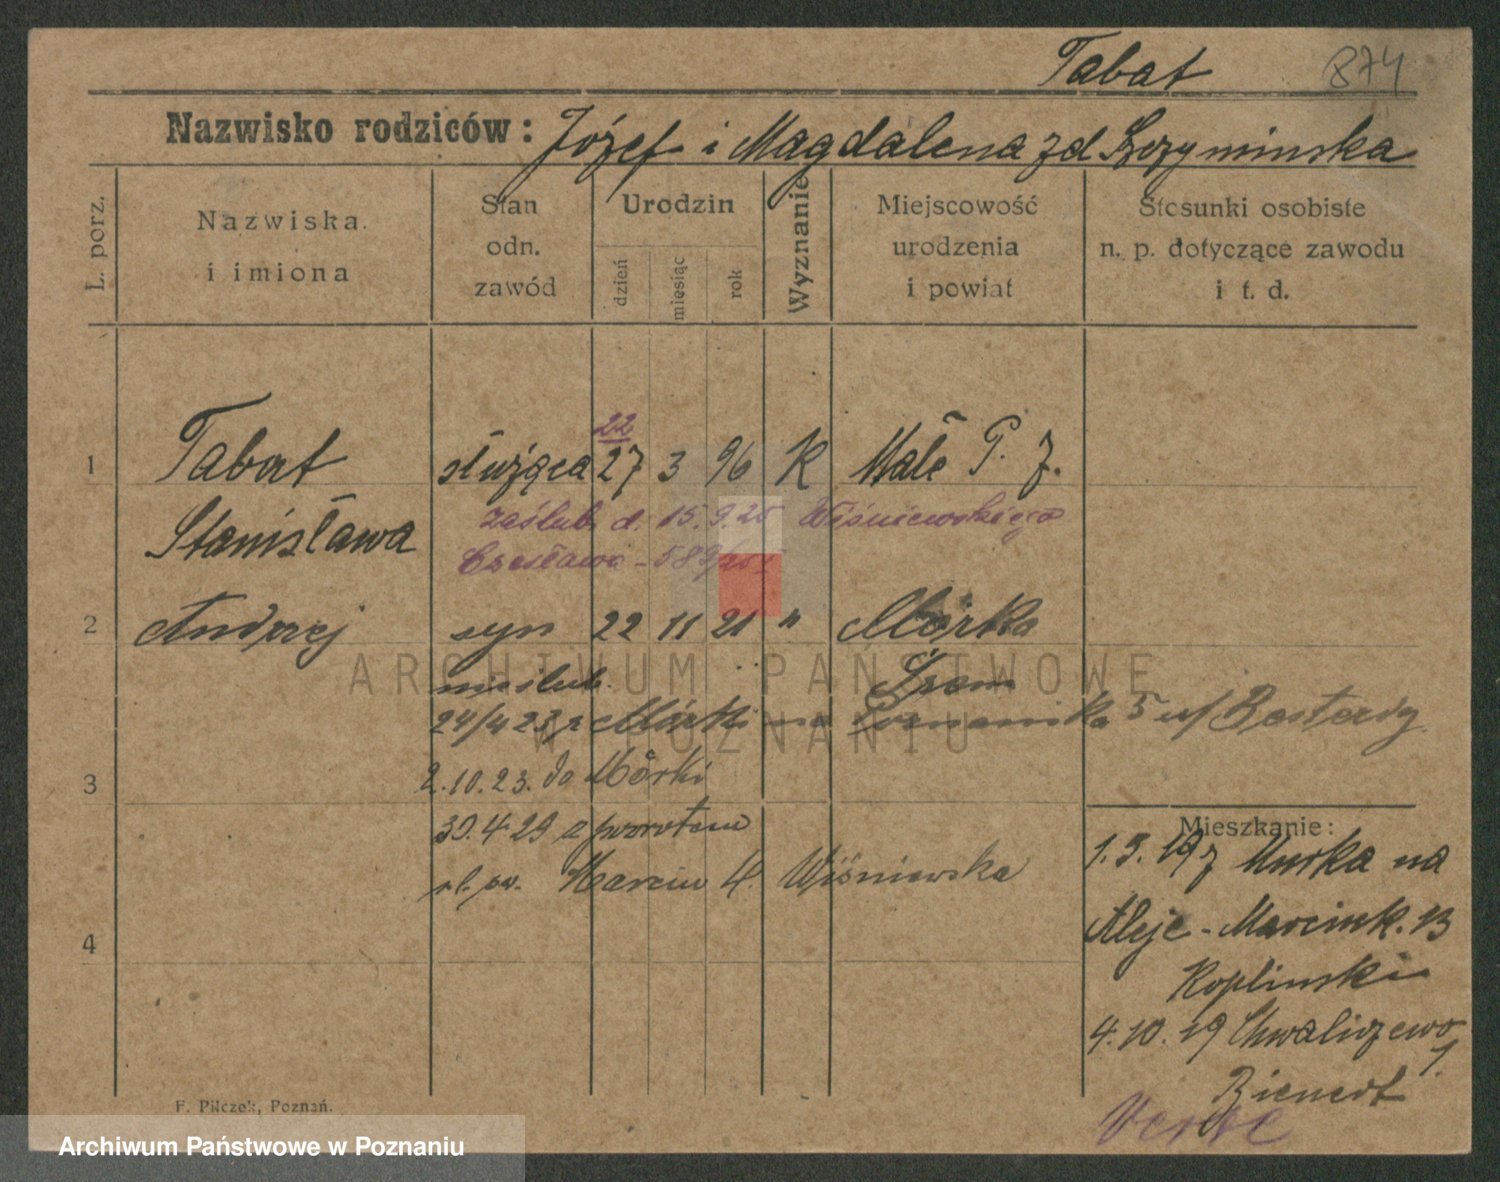 Tabat 874
Nazwisko rodziców: Józef i Magdalena zd Szyminska
L. porz.
Nazwiska i imiona
Stan odn. zawód
Urodzin
dzień miesiąc rok
Wyznanie
Miejscowość urodzenia i powiat
Stosunki osobiste n. p. dotyczące zawodu i t. d.
22
1 Tabat służąca 27 3 96 K Małe P. J.
Stanisława zaślub. d. 15.9.25 Wiśniewskiego
Czesława - 589/25
2 Andrzej syn 22 11 21 " Mórka
nieślub. Śrem
24/4 23 z Mórki na 5 u/
3 2.10.23. do Mórki
30.4 29 z powrotem
Marcin 4. Wiśniewska
4
Mieszkanie:
1.3.19 z Murka na
Aleje - Marcink. 13
Koplinski
4.10.19 Chwaliszewo
1.
Bienert
Verte
F. Pilczek, Poznań.
ARCHIWUM PAŃSTWOWE
W POZNANIU
Archiwum Państwowe w Poznaniu